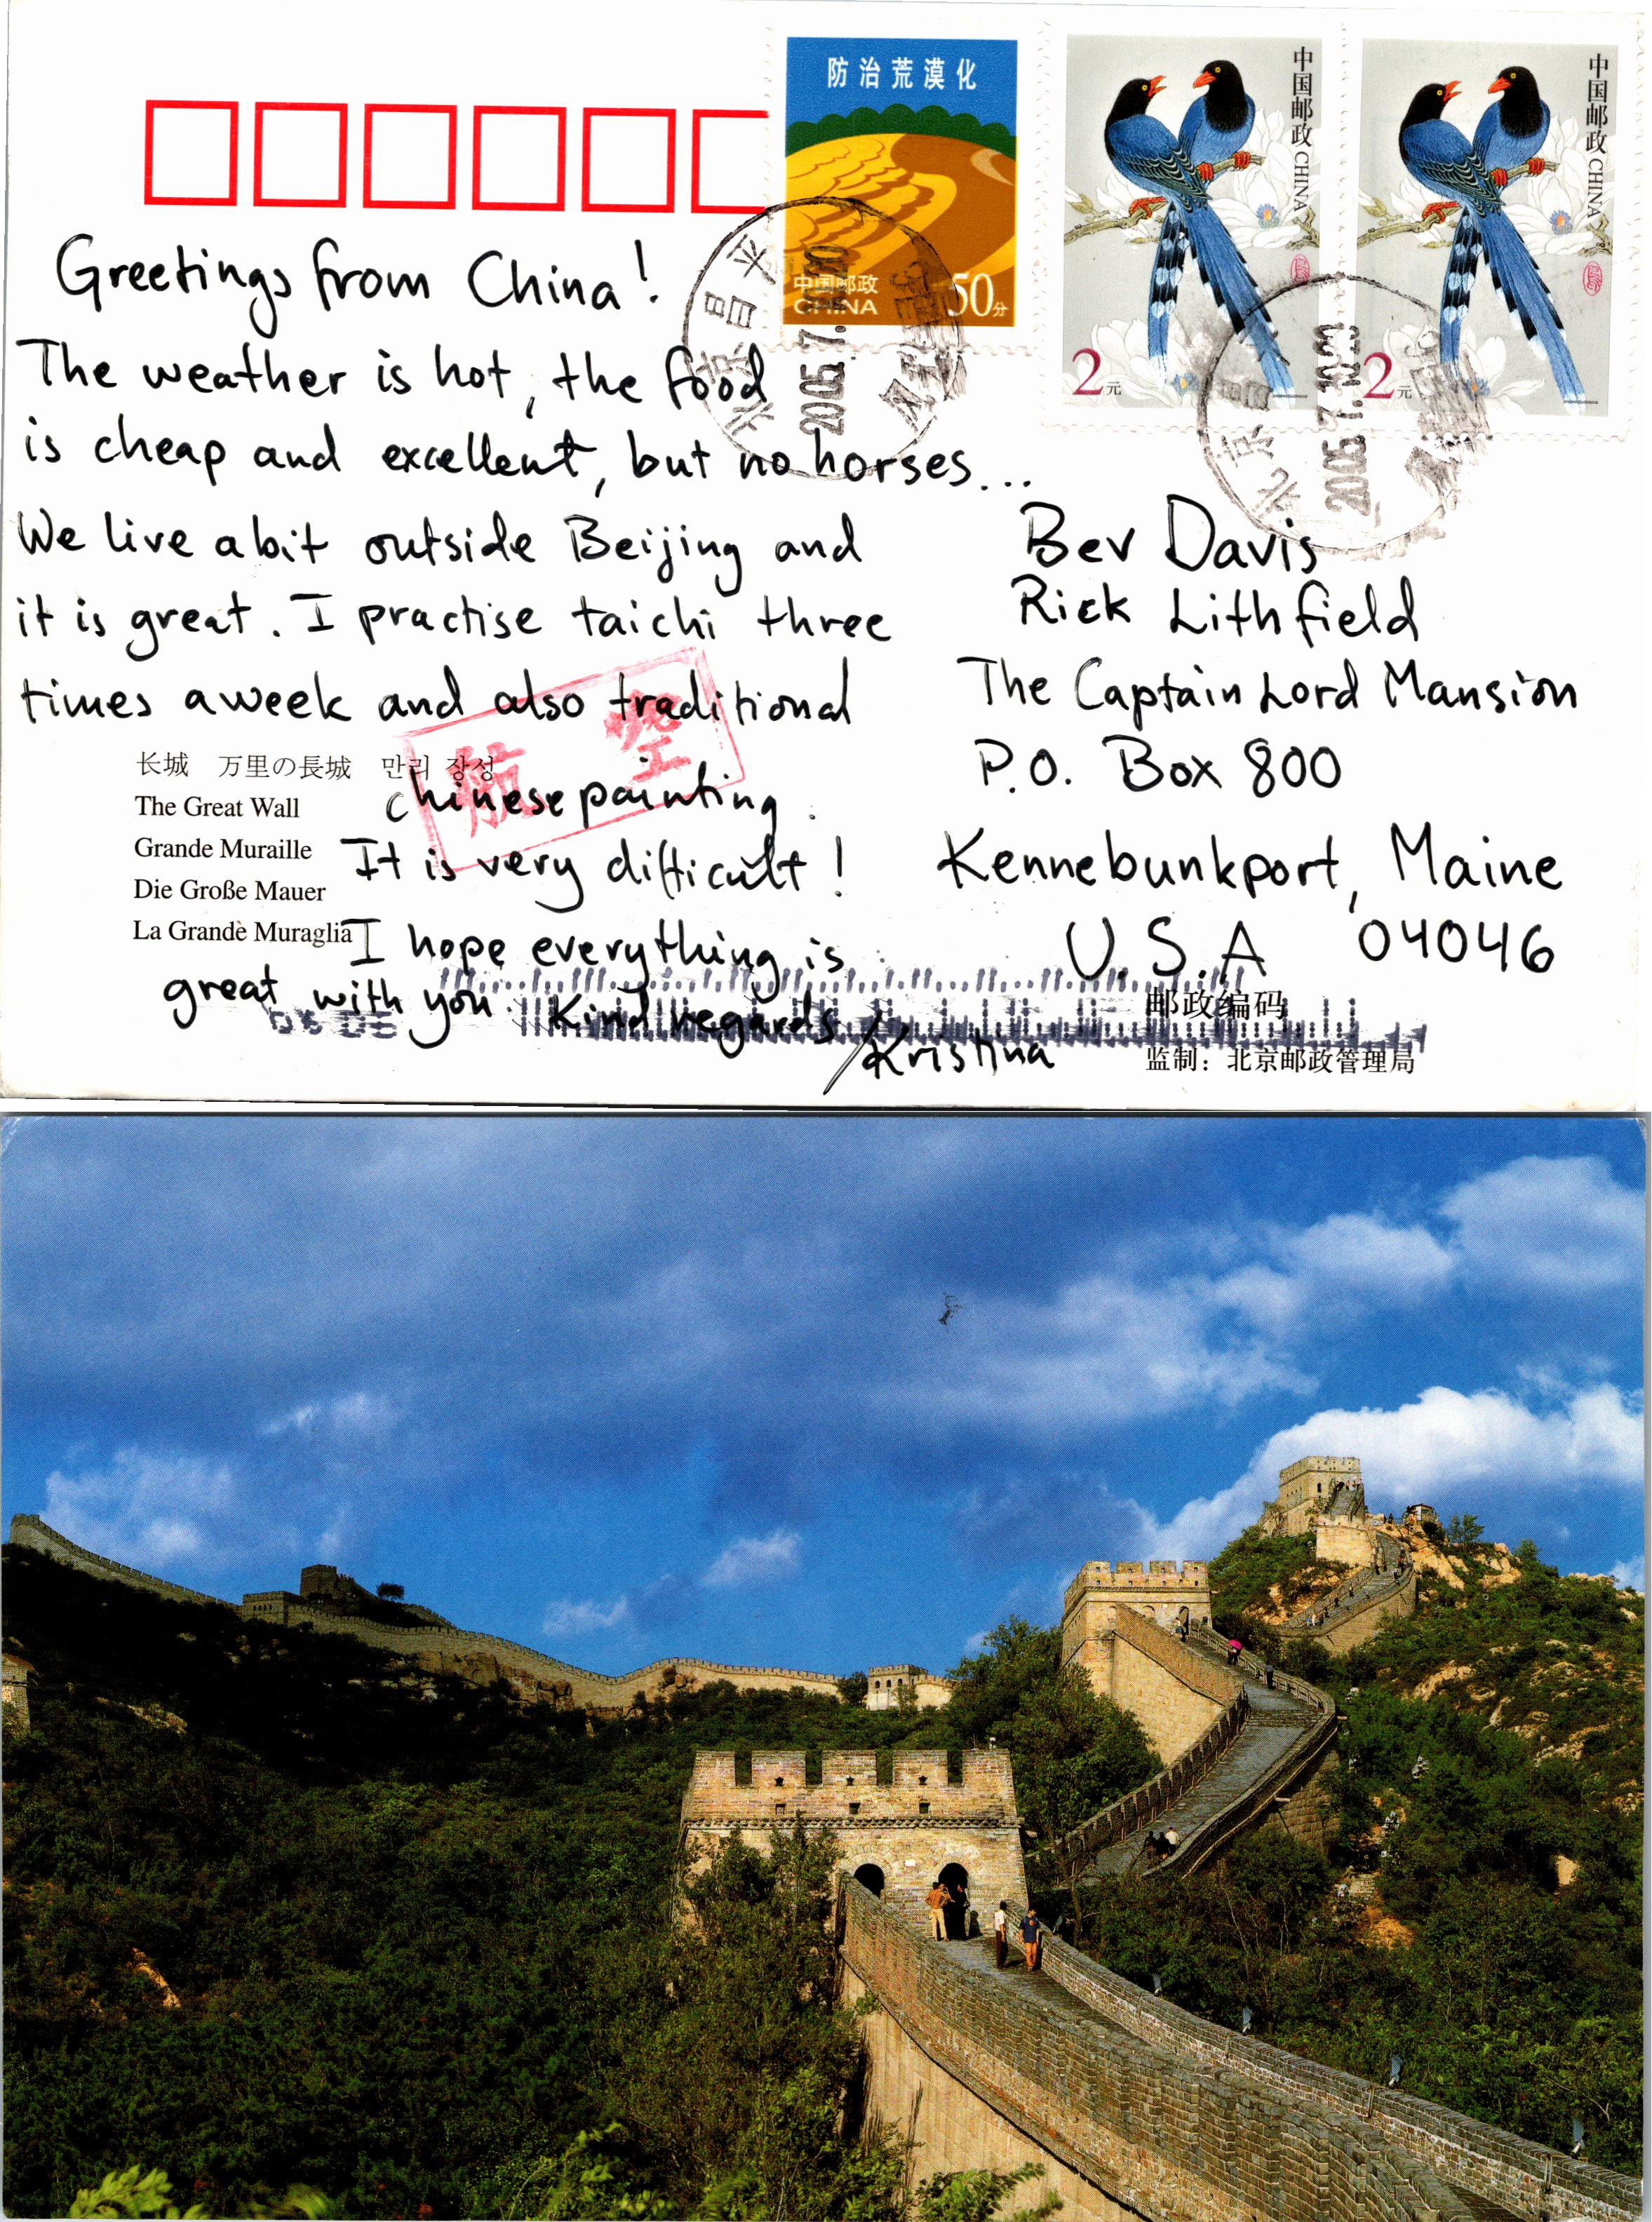 防治荒漠化
中国邮政
CHINA
50分
中国邮政 CHINA
2元
中国邮政 CHINA
2元
北京昌平
2005.7.
北京
2005.7.
Greetings from China!
The weather is hot, the food
is cheap and excellent, but no horses...
We live a bit outside Beijing and
it is great. I practise taichi three
times a week and also traditional
chinese painting.
It is very difficult!
I hope everything is
great with you. Kind regards
/Kristina
航空
长城 万里の長城 만리 장성
The Great Wall
Grande Muraille
Die Große Mauer
La Grande Muraglia
Bev Davis
Rick Lithfield
The Captain Lord Mansion
P.O. Box 800
Kennebunkport, Maine
U.S.A 04046
邮政编码
监制：北京邮政管理局